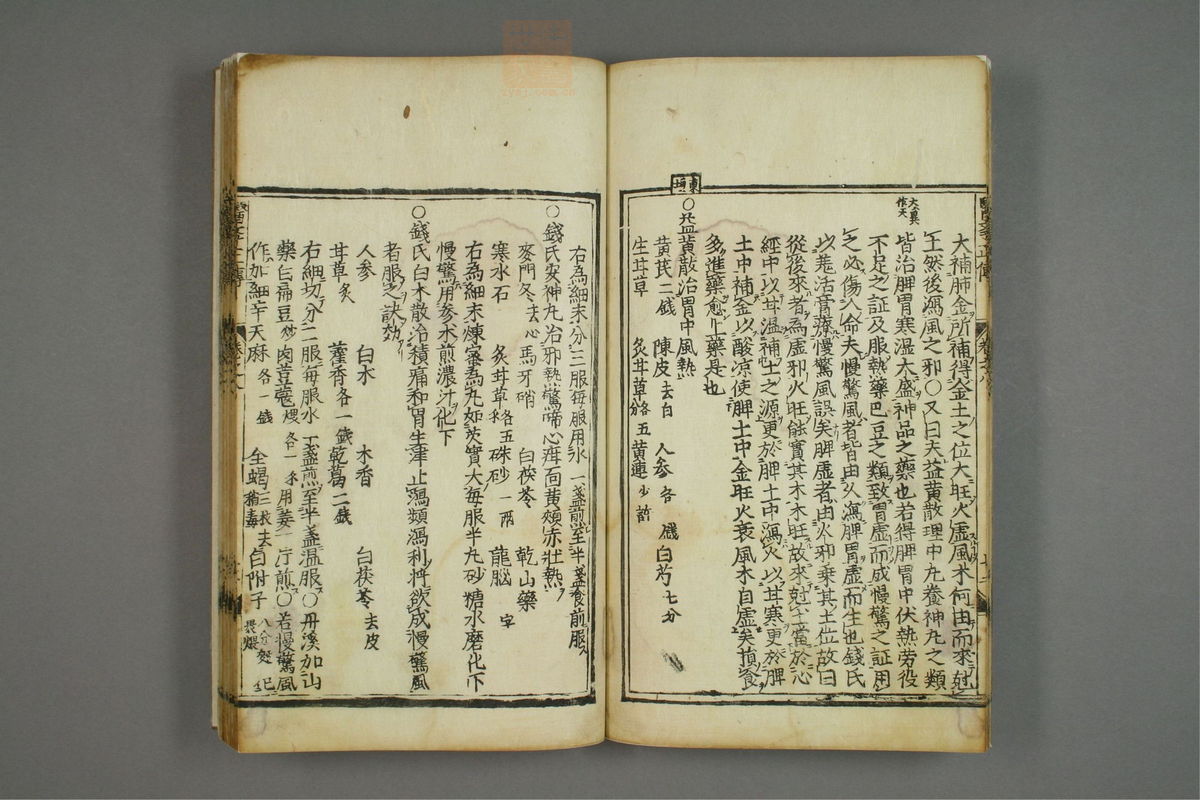 大補肺金所補得金土之位大旺火虛風木何由而來尅
土然後瀉風之邪○又曰夫益黃散理中丸養神丸之類
皆治脾胃寒湿大盛神品之藥也若得脾胃中伏熱劳役
不足之証及服熱藥巴豆之類致胃虛而成慢驚之証用
之必傷人命夫慢驚風者皆由久瀉脾胃虛而生也錢氏
以羗活膏療慢驚風誤矣脾虛者由火邪乗其土位故曰
從後來者為虛邪火旺能實其木木旺故來尅土當於心
經中以甘温補土之源更於脾土中瀉火以甘寒更於脾
土中補金以酸凉使脾土中金旺火衰風木自虛矣損食
多進藥愈上藥是也
大異作天
東垣
○益黃散治胃中風熱
黃芪二錢 陳皮去白 人參各 錢 白芍七分
生甘草 炙甘草各五分 黃連少許
右為細末分三服每服用水一盞煎至半盞食前服
○錢氏安神丸治邪熱驚啼心疳面黃頰赤壯熱
麥門冬去心 馬牙硝 白茯苓 乾山藥
寒水石 炙甘草各五 硃砂一兩 龍腦 字
右為細末煉蜜為丸如芡實大每服半丸砂糖水磨化下
慢驚用參朮煎濃汁化下
○錢氏白朮散治積痛和胃生津止瀉頻瀉利將欲成慢驚風
者服之訣効
人參 白朮 木香 白茯苓去皮
甘草炙 藿香各一錢 乾葛二錢
右細切分二服每服水一盞煎至半盞温服○丹溪加山
藥白扁豆炒肉荳蔻煨各一 用姜一片煎○若慢驚風
作加細辛天麻各一錢 全蝎三枚去稍毒 白附子八分